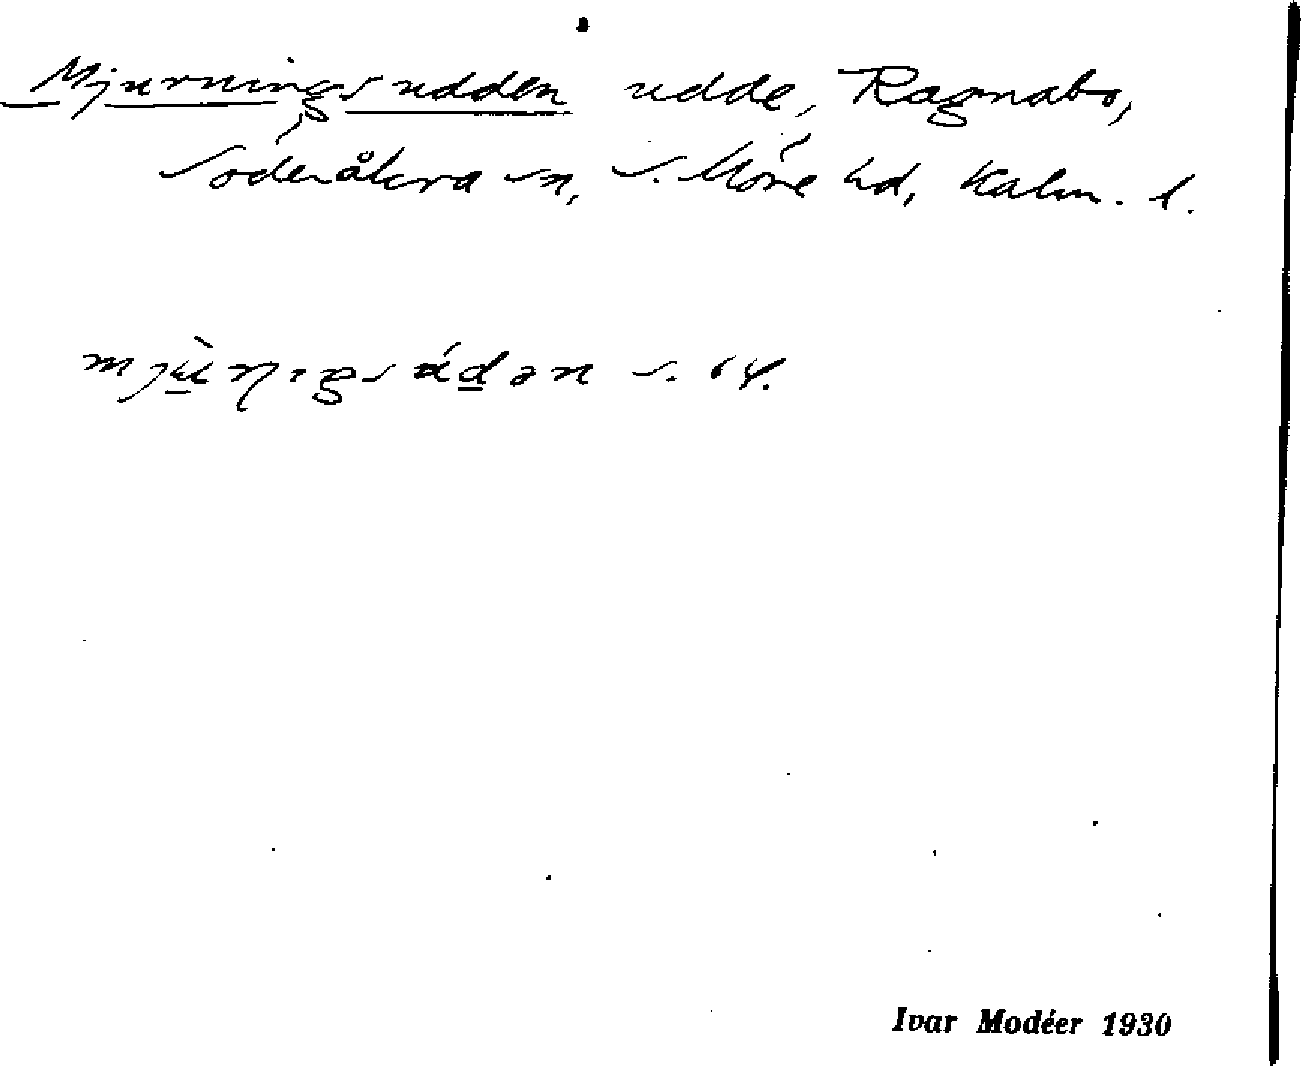 Mjurningsudden udde, Ragnabo,
Söderåkra sn, S. Möre hd, Kalm. l.
mjùṉıgsúḏən s. 64.
Ivar Modéer 1930